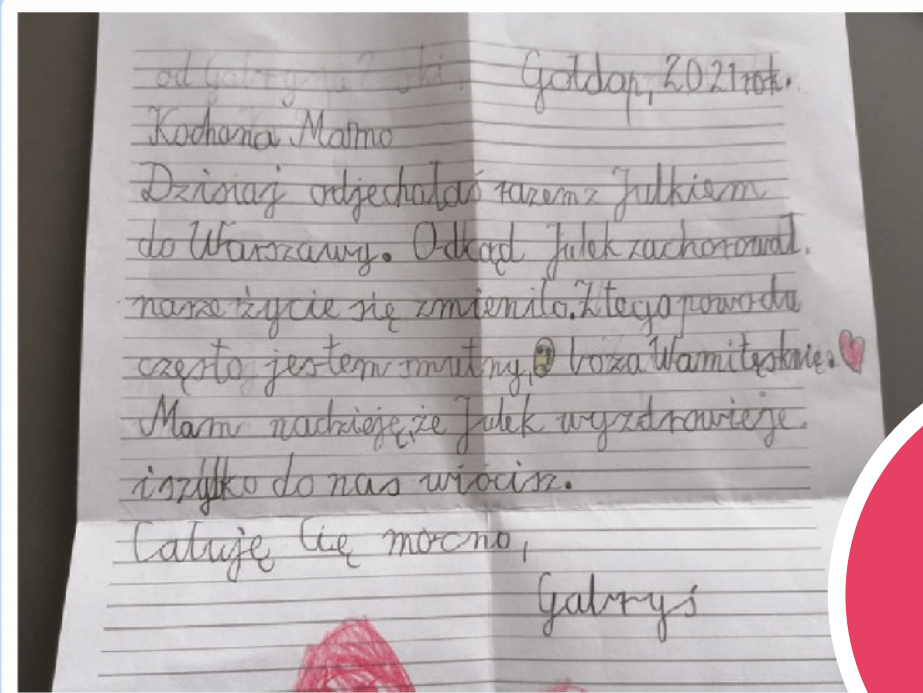 od Gabrysia
Gołdap, 2021 rok.
Kochana Mamo
Dzisiaj odjechałaś razem z Julkiem
do Warszawy. Odkąd Julek zachorował.
nasze życie się zmieniło. Z tego powodu
często jestem smutny, boza Wami tęsknię.
Mam nadzieję, że Julek wyzdrowieje
i szybko do nas wrócisz.
Całuję Cię mocno,
Gabryś